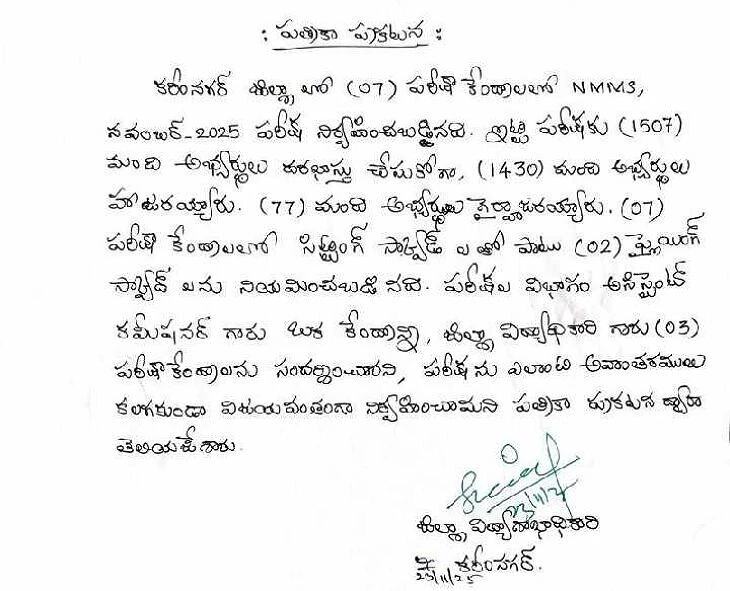 : పత్రికా ప్రకటన :
కరీంనగర్ జిల్లాలో (07) పరీక్షా కేంద్రాలలో NMMS,
నవంబర్-2025 పరీక్ష నిర్వహించబడ్డినది. ఇట్టి పరీక్షకు (1507)
మంది అభ్యర్థులు దరఖాస్తు చేసుకోగా, (1430) మంది అభ్యర్థులు
హాజరయ్యారు. (77) మంది అభ్యర్థులు గైర్హాజరయ్యారు. (07)
పరీక్షా కేంద్రాలలో సిట్టింగ్ స్క్వాడ్ లతో పాటు (02) ఫ్లైయింగ్
స్క్వాడ్ లను నియమించబడినది. పరీక్షల విభాగం అసిస్టెంట్
కమీషనర్ గారు ఒక కేంద్రాన్ని, జిల్లా విద్యాధికారి గారు (03)
పరీక్షా కేంద్రాలను సందర్శించారని, పరీక్షను ఎలాంటి అవాంతరములు
కలగకుండా విజయవంతంగా నిర్వహించామని పత్రికా ప్రకటన ద్వారా
తెలియజేశారు.
23/11/2
జిల్లా విద్యాశాఖాధికారి
కరీంనగర్.
23/11/25